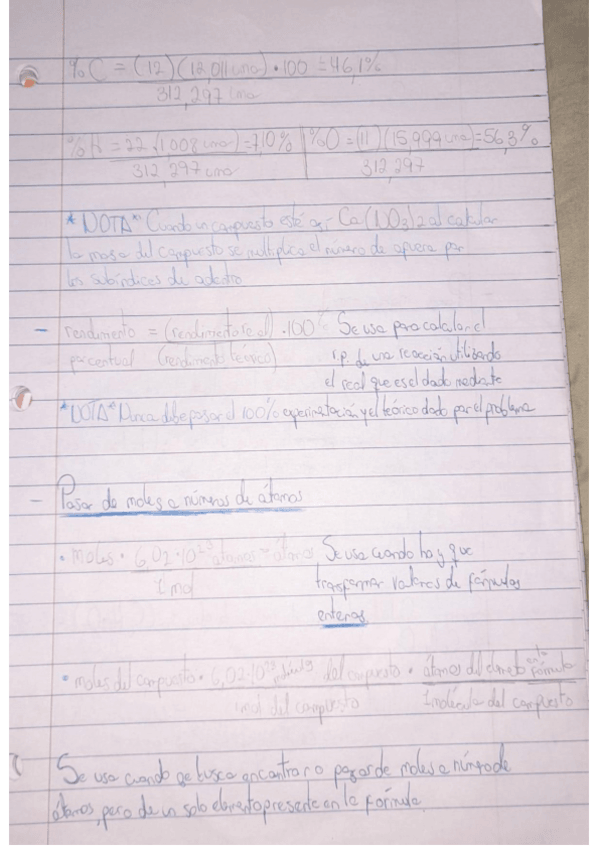 %C = (12)(12,011 uma) · 100 = 46,1%
312,297 uma
%H = 22 (1,008 uma) = 7,10% | %O = (11)(15,999 uma) = 56,3%
312,297 uma 312,297
*NOTA* Cuando un compuesto esté así Ca(NO3)2 al calcular
la masa del compuesto se multiplica el número de afuera por
los subíndices de adentro
- rendimiento = (rendimiento real) · 100 Se usa para calcular el
porcentual (rendimiento teórico) r.p. de una reacción utilizando
el real que es el dado mediante
*NOTA* Nunca debe pasar el 100% experimentación y el teórico dado por el problema
- Pasar de moles a números de átomos
• moles · 6,02·10^23 átomos = átomos Se usa cuando hay que
1 mol transformar valores de fórmulas
enteras.
• moles del compuesto · 6,02·10^23 moléculas del compuesto · átomos del elemento en la fórmula
1mol del compuesto 1molécula del compuesto
Se usa cuando se busca encontrar o pasar de moles a número de
átomos, pero de un solo elemento presente en la fórmula.